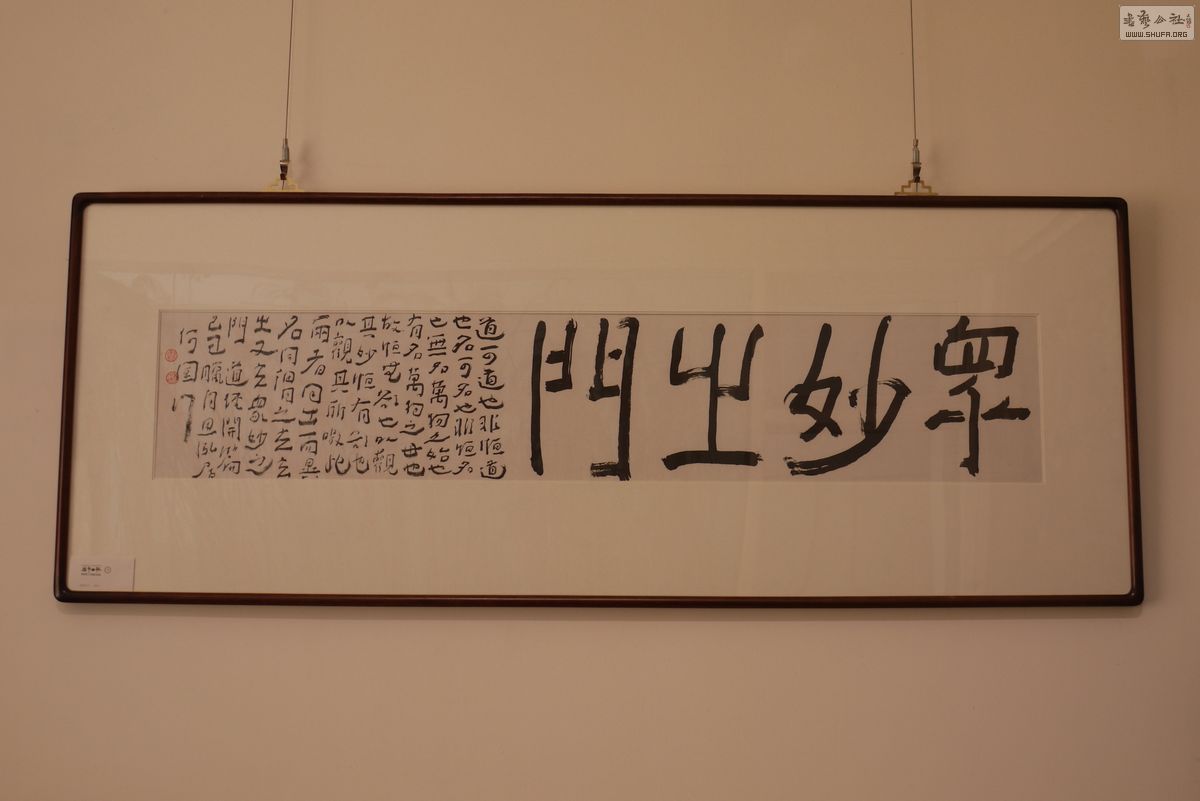 眾妙之門
道可道也非恒道
也名可名也非恒名
也無名萬物之始也
有名萬物之母也
故恒無欲也以觀
其妙恒有欲也
以觀其所噭兩
者同出而異
名同謂玄之
又玄眾妙之
門 道經開篇
己丑臘月
何國門
書藝公社
WWW.SHUFA.ORG